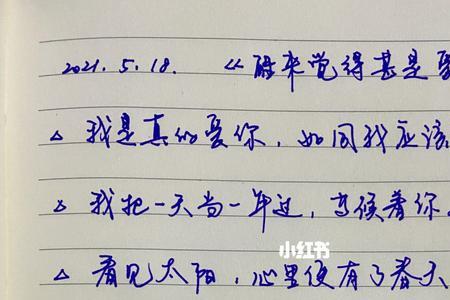 2021.5.18. 《醒来觉得甚是爱
△ 我是真的爱你，如同我应该
△ 我把一天当一年过，等候着你
小红书
△ 看见太阳，心里便有了春天